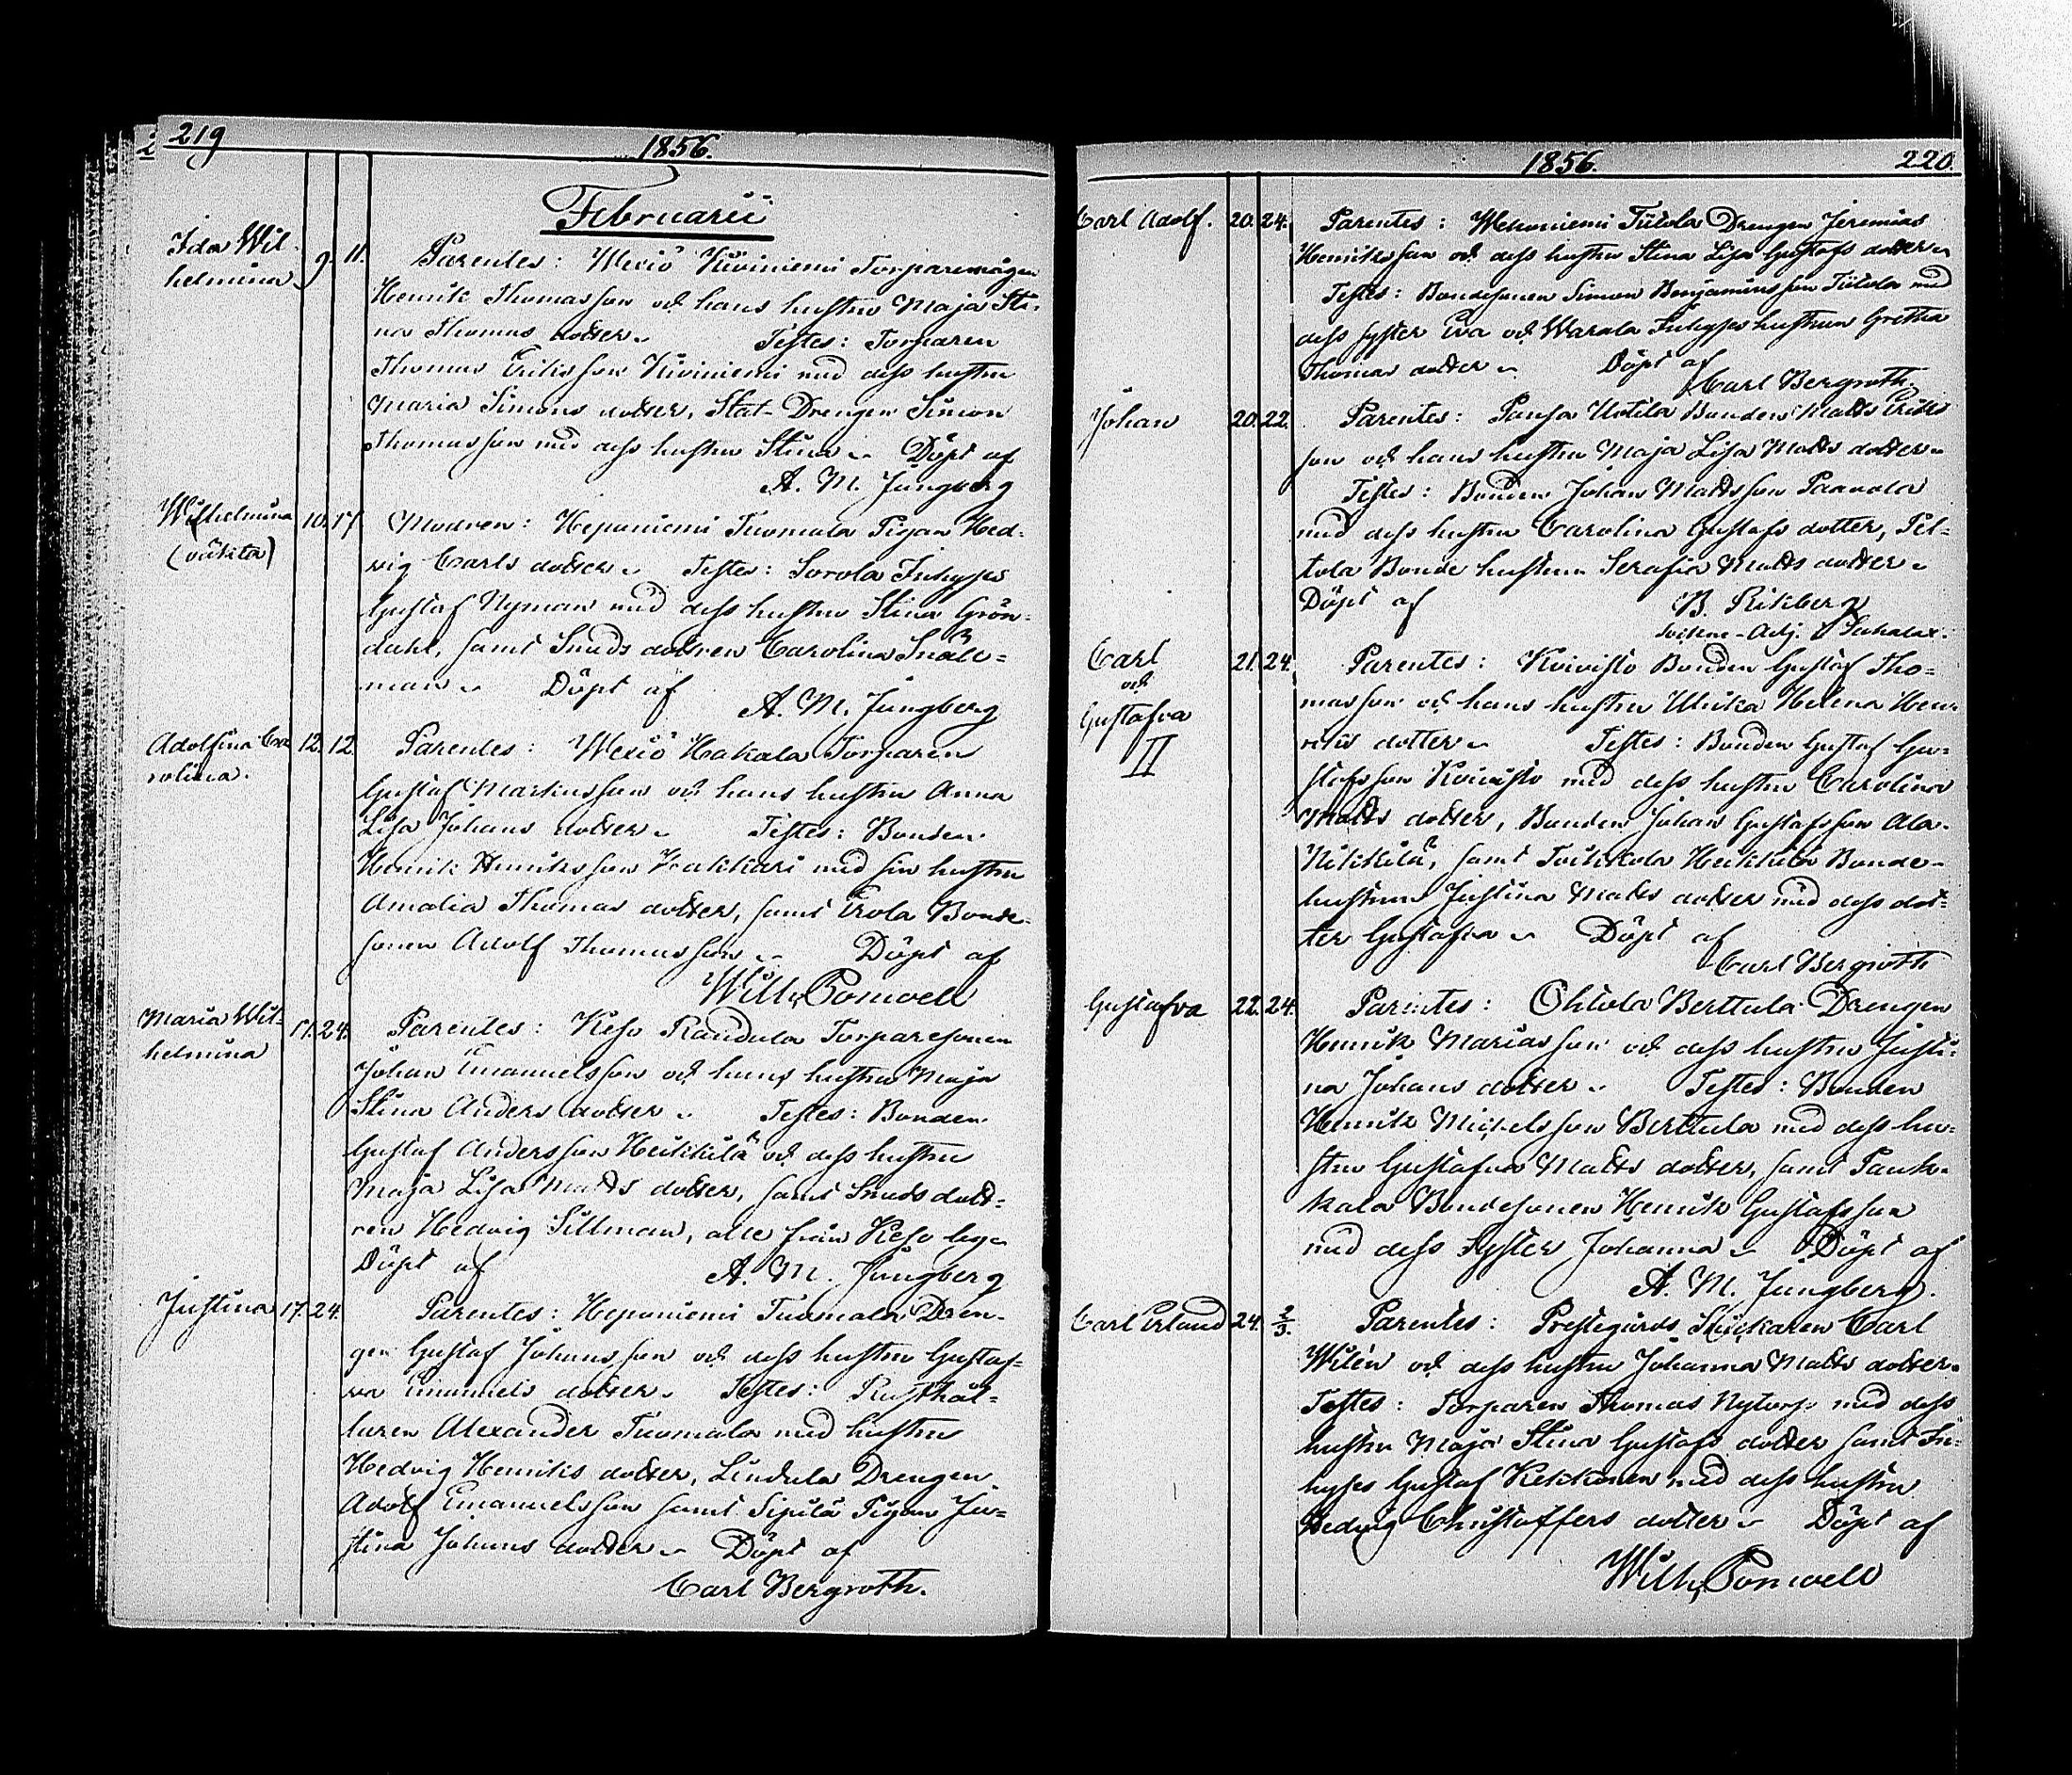 219
1856.
Februarii
Ida Wil-
helmina
9. 11.
Parentes: Wexiö Kiviniemi Torparemågen
Henrik Thomasson och hans hustru Maja Sti-
na Thomas dotter. Testes: Torparen
Thomas Eriksson Kiviniemi med dess hustru
Maria Simons dotter, Stat-Drengen Simon
Thomasson med dess hustru Stina. Döpt af
A. M. Jungberg
Wilhelmina
(oäkta)
10. 17.
Modren: Heponiemi Tuomala Pigan Hed-
vig Carls dotter. Testes: Sorola Inhyses
Gustaf Nyman med dess hustru Stina Grön-
dahl, samt Smeds dottren Carolina Snäll-
man. Döpt af
A. M. Jungberg
Adolfina Ca-
rolina.
12. 12.
Parentes: Wexiö Hakala Torparen
Gustaf Martinsson och hans hustru Anna
Lisa Johans dotter. Testes: Bonden
Henrik Henriksson Krakkari med sin hustru
Amalia Thomas dotter, samt Erola Bonde-
sonen Adolf Thomasson. Döpt af
Wilh. Ponwell
Maria Wil-
helmina
17. 24.
Parentes: Keso Raudula Torparesonen
Johan Emanuelsson och hans hustru Maja
Stina Anders dotter. Testes: Bonden
Gustaf Andersson Heikkilä och dess hustru
Maja Lisa Matts dotter, samt Smeds dott-
ren Hedvig Sillman, alle från Keso by.
Döpt af
A. M. Jungberg
Justina
17. 24.
Parentes: Heponiemi Tuomala Dren-
gen Gustaf Johansson och dess hustru Gustaf-
va Emanuels dotter. Testes: Rusthål-
laren Alexander Tuomala med hustru
Hedvig Henriks dotter, Lindula Drengen
Adolf Emanuelsson samt Sipilä Pigan Ju-
stina Johans dotter. Döpt af
Carl Bergroth.
1856.
220.
Carl Adolf.
20. 24.
Parentes: Wehoniemi Tiitola Drengen Jeremias
Henriksson och dess hustru Stina Lisa Gustafs dotter.
Testes: Bondesonen Simon Benjaminsson Tiitola med
dess syster Eva och Warala Inhyses hustrun Gretha
Thomas dotter. Döpt af
Carl Bergroth.
Johan
20. 22.
Parentes: Pansa Uotila Bonden Matts Eriks
son och hans hustru Maja Lisa Matts dotter.
Testes: Bonden Johan Mattsson Paavola
med dess hustru Carolina Gustafs dotter, Pel-
tola Bonde hustrun Serafia Matts dotter.
Döpt af
B. Rikberg
Sockne-Adj. i Sahalax.
Carl
och
Gustafva
II
21. 24.
Parentes: Koivisto Bonden Gustaf Tho-
masson och hans hustru Ulrika Helena Hen-
riks dotter. Testes: Bonden Gustaf Gu-
stafsson Koivisto med dess hustru Carolina
Matts dotter, Bonden Johan Gustafsson Ala-
Nikkilä, samt Toikkola Heikkilä Bonde-
hustrun Justina Matts dotter med dess dot-
ter Gustafva. Döpt af
Carl Bergroth
Gustafva
22. 24.
Parentes: Ohtola Berttula Drengen
Henrik Mariasson och dess hustru Justi-
na Johans dotter. Testes: Bonden
Henrik Michelsson Berttula med dess hu-
stru Gustafva Matts dotter, samt Pauk-
kala Bondesonen Henrik Gustafsson
med dess syster Johanna. Döpt af
A. M. Jungberg.
Carl Erland
24. 2/3.
Parentes: Prestegårds Snickaren Carl
Wilén och dess hustru Johanna Matts dotter.
Testes: Torparen Thomas Nytorp med dess
hustru Maja Stina Gustafs dotter samt In-
hyses Gustaf Kekkonen med dess hustru
Hedvig Christoffers dotter. Döpt af
Wilh. Ponwell